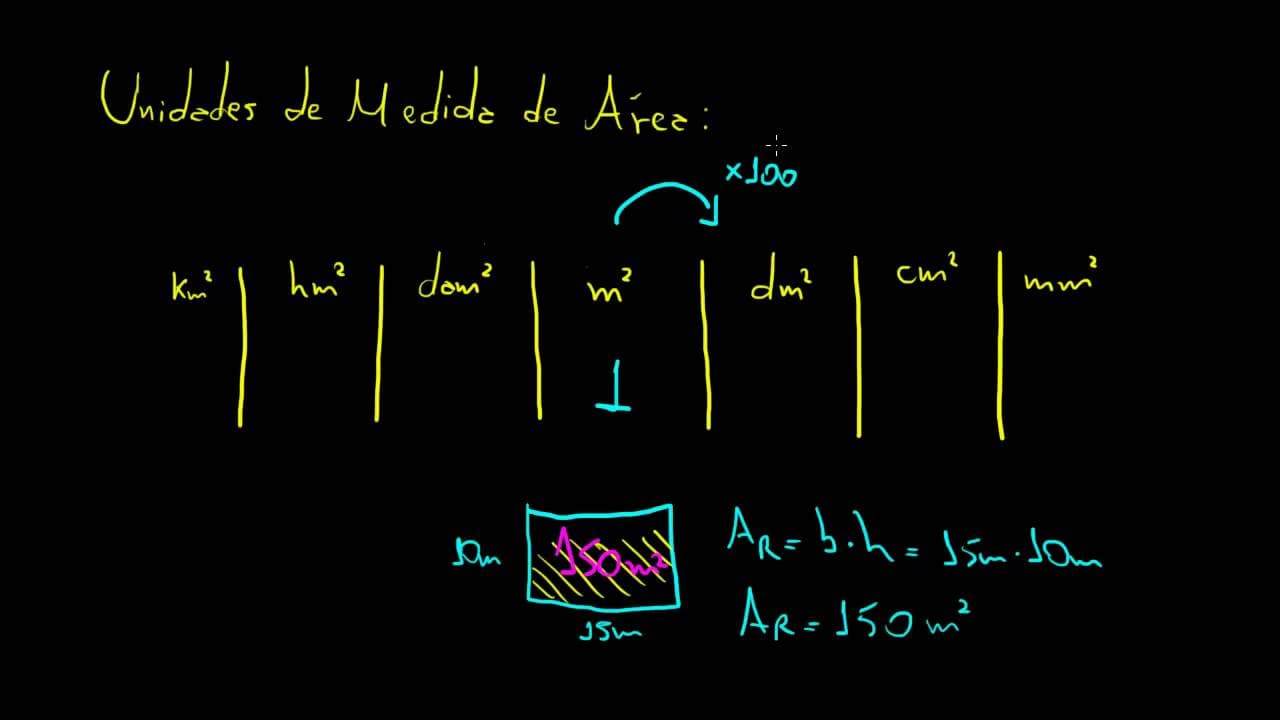 Unidades de Medida de Área:
×100
km² hm² dam² m² dm² cm² mm²
1
10m 150m² A_R = b.h = 15m.10m
15m A_R = 150m²